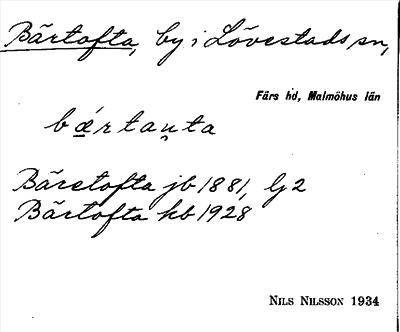 Bärtofta, by i Lövestads sn,
Färs hd, Malmöhus län
bǽrtaṇta
Bäretofta jb 1881, lj 2
Bärtofta kb 1928
NILS NILSSON 1934